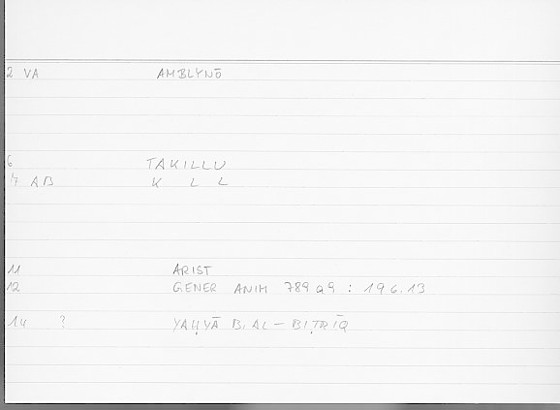 2 VA AMBLYNŌ
6 TAKILLU
7 AB K L L
11 ARIST
12 GENER ANIM 789a9 : 196.13
14 ? YAḤYĀ B. AL-BIṬRĪQ